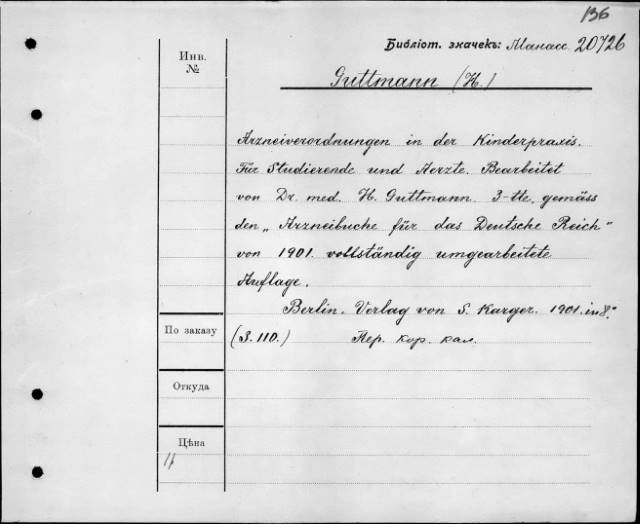 136
Библіот. значекъ: Манасс. 20726
Инв.
№
Guttmann (H.)
Arzneiverordnungen in der Kinderpraxis.
Für Studierende und Aerzte. Bearbeitet
von Dr. med. H. Guttmann. 3-tte, gemäss
den „Arzneibuche für das Deutsche Reich"
von 1901. vollständig umgearbeitete
Auflage.
Berlin. Verlag von S. Karger. 1901. in 8.°
По заказу
(S. 110.) Пер. кор. кал.
Откуда
Цѣна